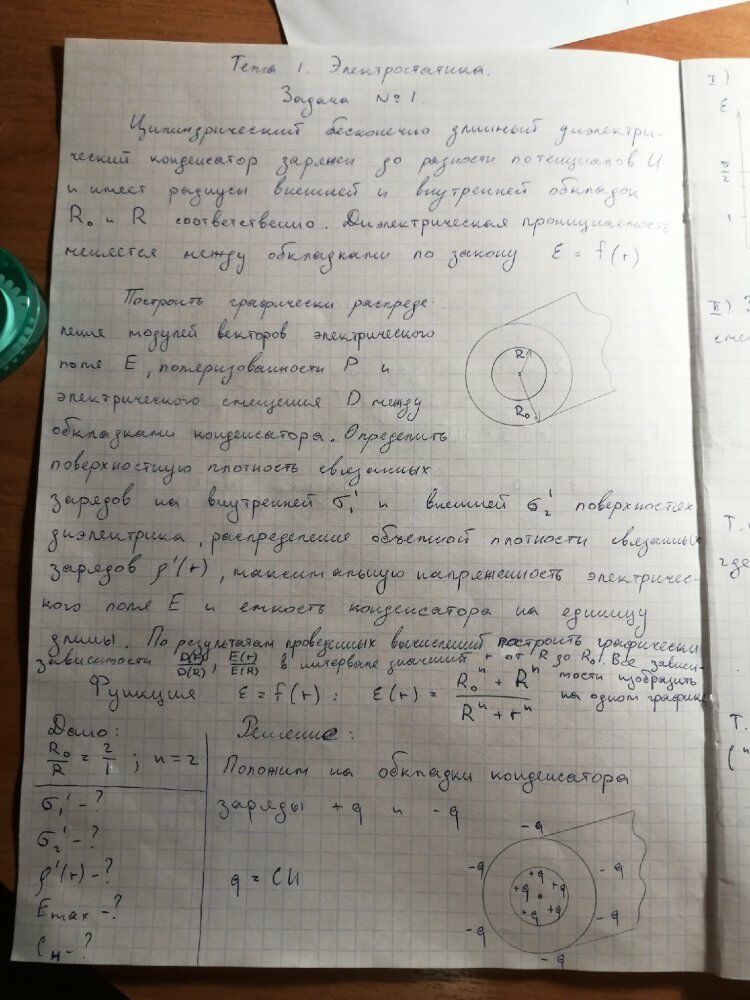 Тема 1. Электростатика.
Задача № 1.
Цилиндрический бесконечно длинный диэлектри-
ческий конденсатор заряжен до разности потенциалов U
и имеет радиусы внешней и внутренней обкладок
R₀ и R соответственно. Диэлектрическая проницаемость
меняется между обкладками по закону ε = f(r)
Построить графически распреде-
ление модулей векторов электрического
поля E, поляризованности P и
электрического смещения D между
обкладками конденсатора. Определить
поверхностную плотность связанных
зарядов на внутренней σ₁' и внешней σ₂' поверхностях
диэлектрика, распределение объемной плотности связанных
зарядов ρ'(r), максимальную напряженность электричес-
кого поля E и емкость конденсатора на единицу
длины. По результатам проведенных вычислений построить графически
зависимости D(r)/D(R), E(r)/E(R) в интервале значений r от R до R₀. Все зависи-
мости изобразить
на одном графике
Функция ε = f(r): ε(r) = (R₀ⁿ + Rⁿ)/(Rⁿ + rⁿ)
R
R₀
Дано:
R₀/R = 2/1; n = 2
σ₁' - ?
σ₂' - ?
ρ'(r) - ?
Emax - ?
Решение:
Положим на обкладки конденсатора
заряды +q и -q
q = CU
-q
-q
-q
-q
-q
-q
+q
+q
+q
+q
+q
I)
ε
5/2
1
II)
Т.
где
Т.